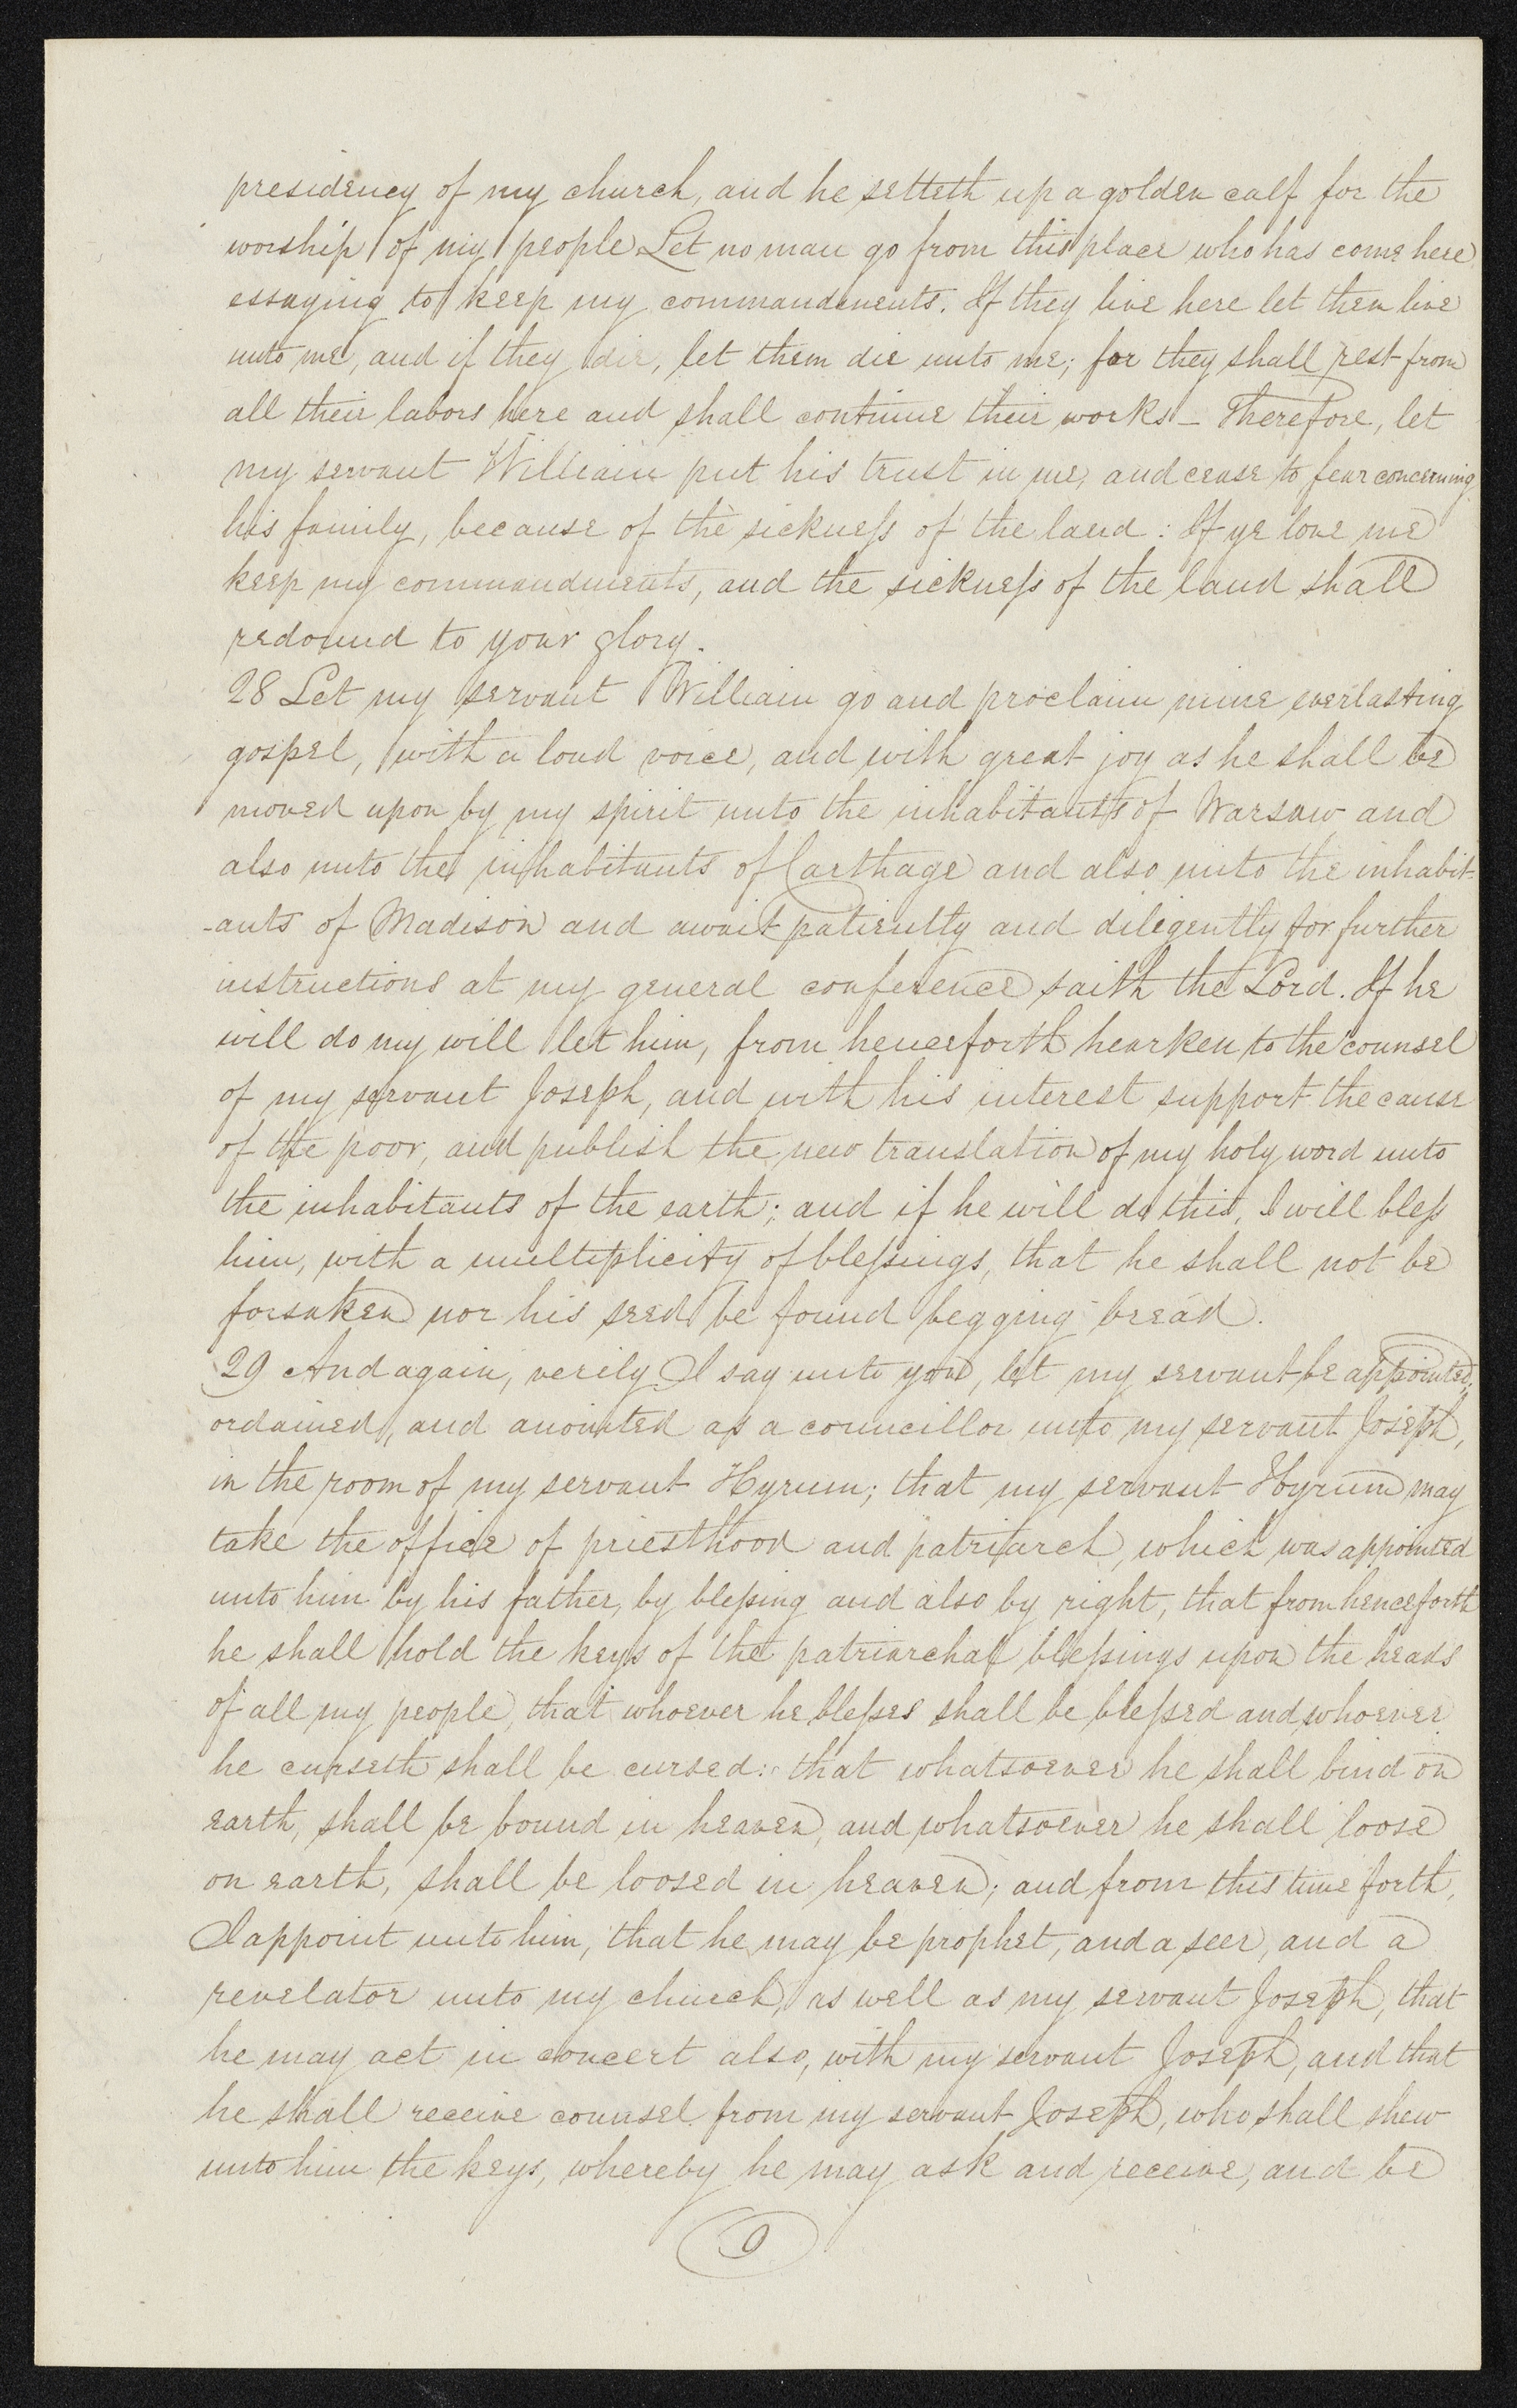 presidency of my church, and he setteth up a golden calf for the
worship of my people Let no man go from this place who has come here
essaying to keep my commandments. If they live here let them live
unto me, and if they die, let them die unto me; for they shall rest from
all their labors here and shall continue their works – Therefore, let
my servant William put his trust in me, and cease to fear concerning
his family, because of the sickness of the land: If ye love me
keep my commandments, and the sickness of the land shall
redound to your glory.
28 Let my servant William go and proclaim mine everlasting
gospel, with a loud voice, and with great joy as he shall be
moved upon by my spirit unto the inhabitants of Warsaw and
also unto the inhabitants of Carthage and also unto the inhabit-
-ants of Madison and await patiently and diligently for further
instructions at my general conference saith the Lord. If he
will do my will let him, from henceforth hearken to the counsel
of my servant Joseph, and with his interest support the cause
of the poor, and publish the new translation of my holy word unto
the inhabitants of the earth; and if he will do this, I will bless
him, with a multiplicity of blessings, that he shall not be
forsaken nor his seed be found begging bread.
29 And again, verily I say unto you, let my servant be appointed,
ordained, and anointed as a councillor unto my servant Joseph,
in the room of my servant Hyrum; that my servant Hyrum may
take the office of priesthood and patriarch, which was appointed
unto him by his father, by blessing and also by right, that from henceforth
he shall hold the keys of the patriarchal blessings upon the heads
of all my people, that whoever he blesses shall be blessed and whoever
he curseth shall be cursed: that whatsoever he shall bind on
earth, shall be bound in heaven, and whatsoever he shall loose
on earth, shall be loosed in heaven; and from this time forth,
I appoint unto him, that he may be prophet, and a seer, and a
revelator unto my church, as well as my servant Joseph, that
he may act in concert also, with my servant Joseph, and that
he shall receive counsel from my servant Joseph, who shall shew
unto him the keys, whereby he may ask and receive, and be
9